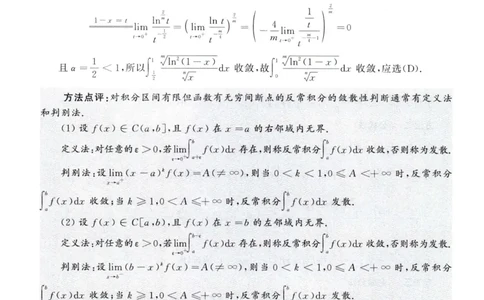 1-x=t lim_{t→0⁺} ln^{2/m} t / t^{-1/2} = (lim_{t→0⁺} ln t / t^{-m/4})^{2/m} = (-4/m lim_{t→0⁺} (1/t) / t^{-m/4-1})^{2/m} = 0
且 a=1/2<1,所以∫_{1/2}^{1} ᵐ√ln²(1-x) / ⁿ√x dx 收敛,故∫_{0}^{1} ᵐ√ln²(1-x) / ⁿ√x dx 收敛,应选(D).
方法点评:对积分区间有限但函数有无穷间断点的反常积分的敛散性判断通常有定义法
和判别法.
(1) 设 f(x)∈C(a,b],且 f(x) 在 x=a 的右邻域内无界.
定义法:对任意的ε>0,若lim_{ε→0⁺}∫_{a+ε}^{b} f(x)dx 存在,则称反常积分∫_{a}^{b} f(x)dx 收敛,否则称为发散.
判别法:设 lim_{x→a⁺}(x-a)^k f(x)=A(≠∞),则当 0<k<1,0≤A<+∞ 时,反常积分
∫_{a}^{b} f(x)dx 收敛;当 k≥1,0<A≤+∞ 时,反常积分∫_{a}^{b} f(x)dx 发散.
(2) 设 f(x)∈C[a,b),且 f(x) 在 x=b 的左邻域内无界.
定义法:对任意的ε>0,若lim_{ε→0⁺}∫_{a}^{b-ε} f(x)dx 存在,则称反常积分∫_{a}^{b} f(x)dx 收敛,否则称为发散.
判别法:设 lim_{x→b⁻}(b-x)^k f(x)=A(≠∞),则当 0<k<1,0≤A<+∞ 时,反常积分
∫_{a}^{b} f(x)dx 收敛;当 k≥1,0<A≤+∞ 时,反常积分∫_{a}^{b} f(x)dx 发散.